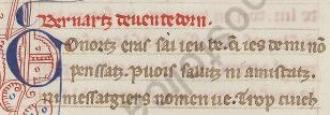 Bernartz deuentedorn.
Conortz eras sai ieu be. q̄ ies de mi nō
penssatz. Puois salutz ni amistatz.
Ni messatgiers nomen ue. Trop cuich